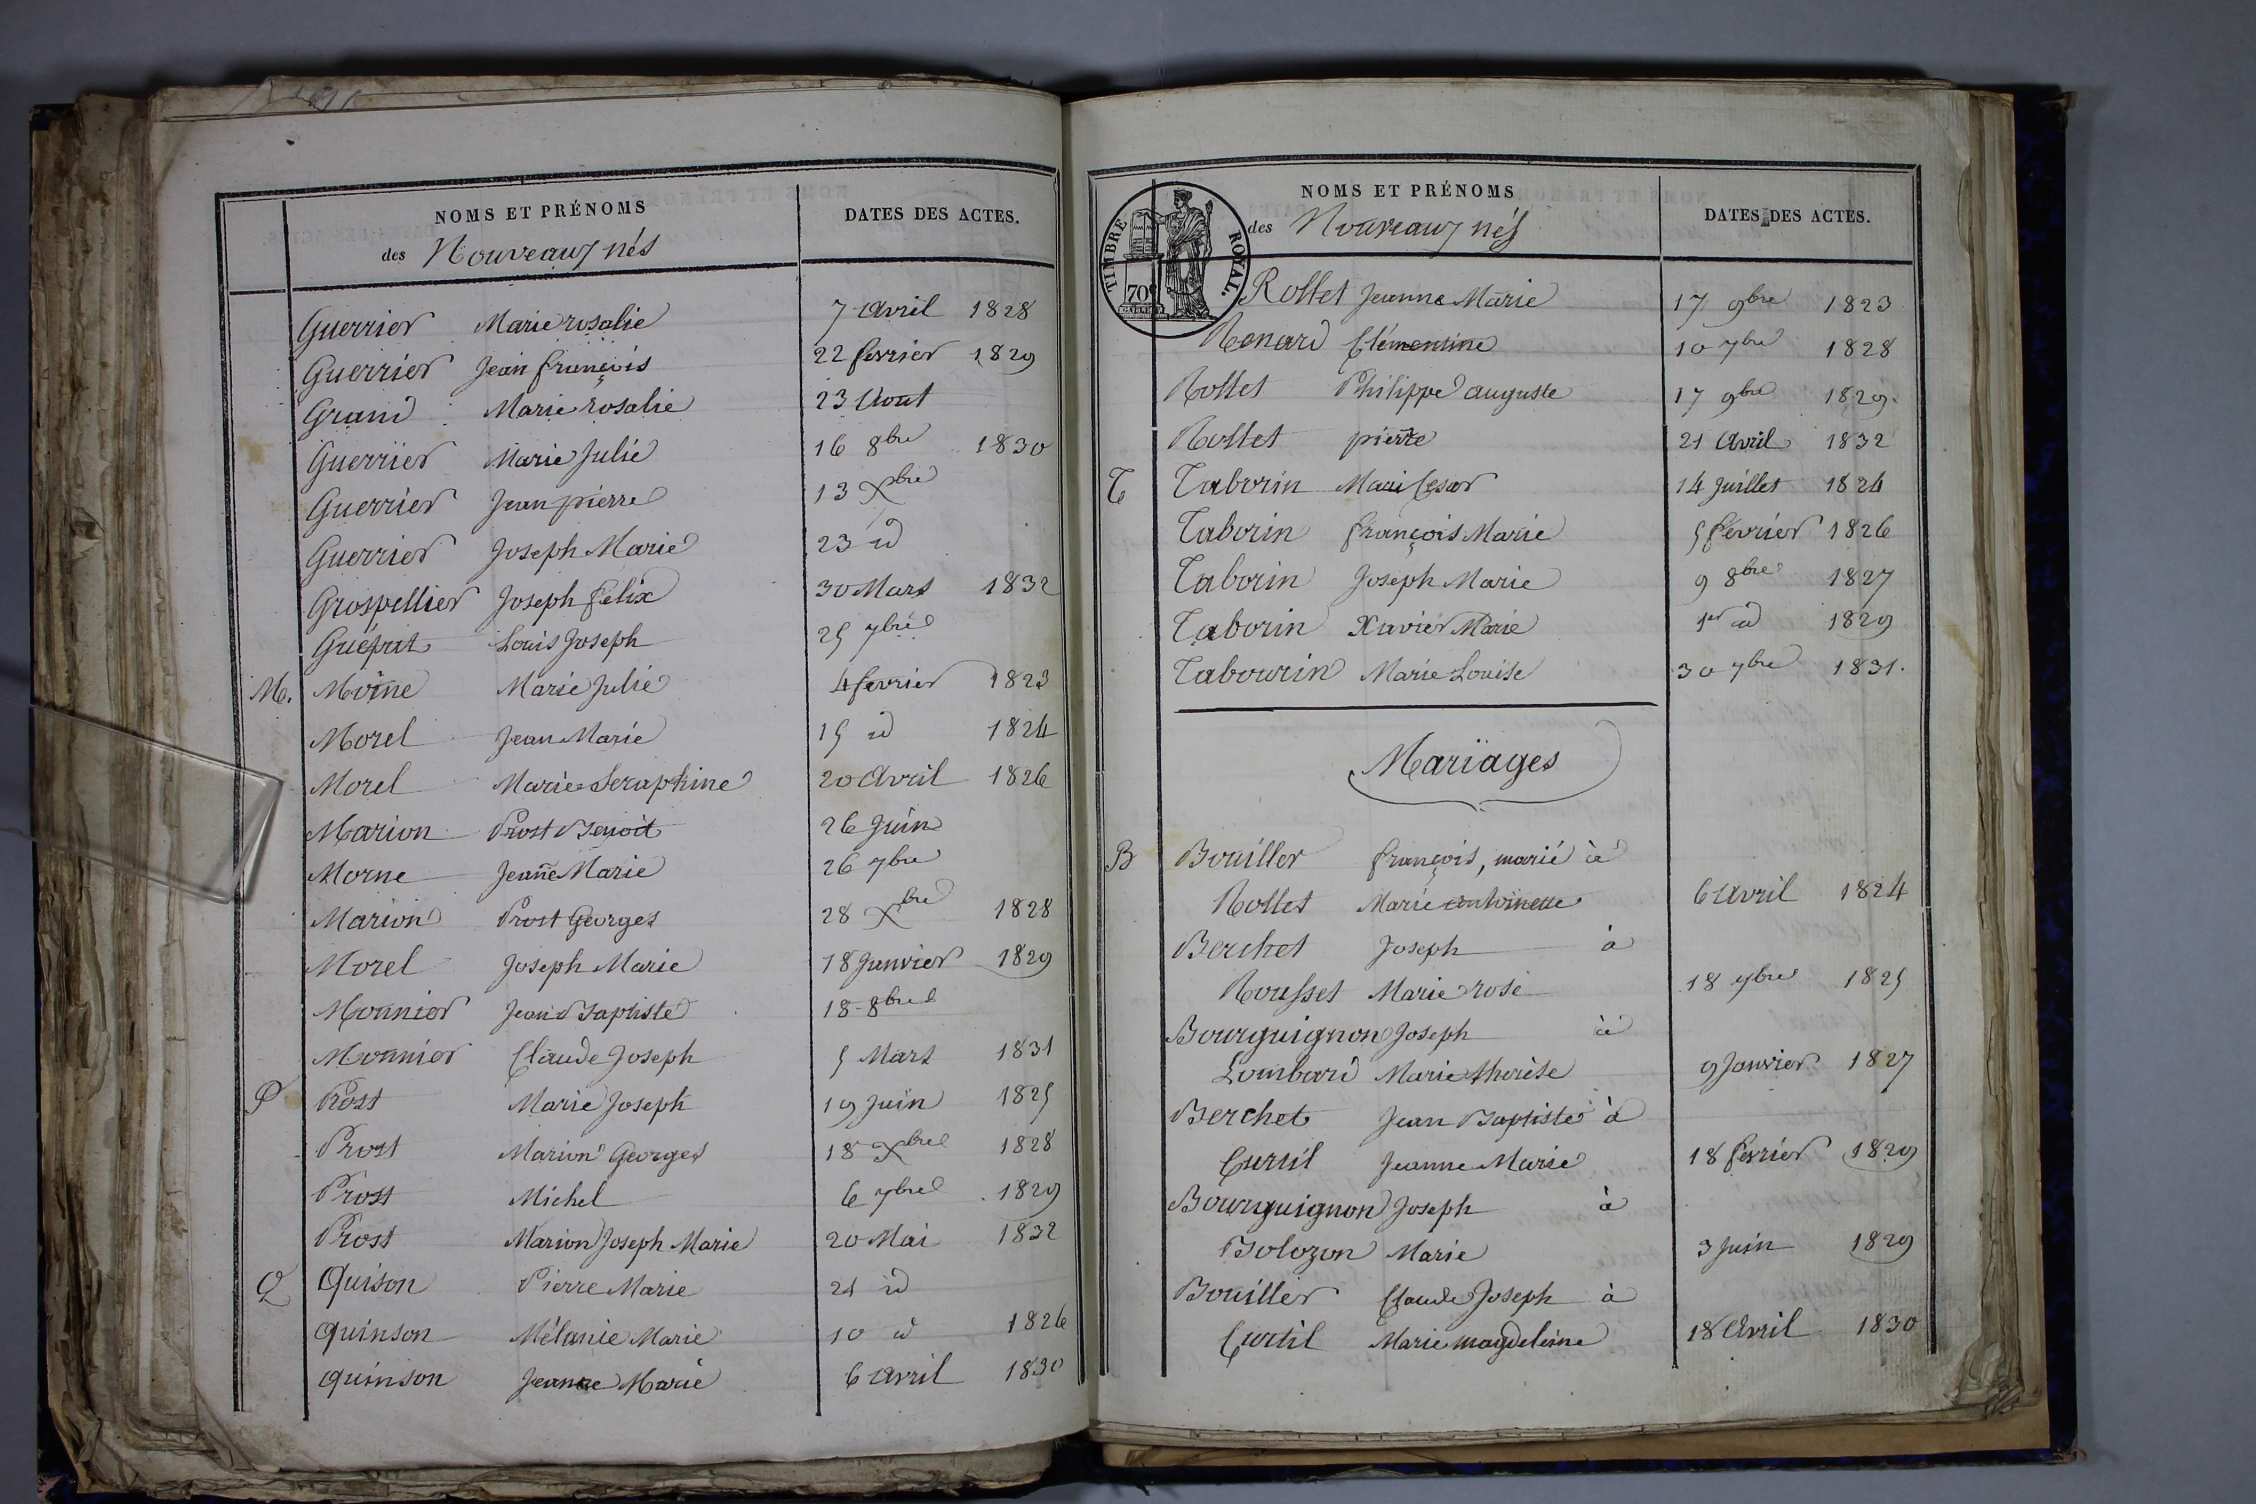 NOMS ET PRÉNOMS
DATES DES ACTES.
des Nouveaux nés
Guerrier Marie rosalie 7 Avril 1828
Guerrier Jean françois 22 fevrier 1829
Grand Marie rosalie 23 Aout
Guerrier Marie Julie 16 8bre 1830
Guerrier Jean pierre 13 Xbre
Guerrier Joseph Marie 23 id
Grospellier Joseph felix 30 Mars 1832
Guéprat Louis Joseph 25 7bre
M. Moine Marie Julie 4 fevrier 1823
Morel Jean Marie 15 id 1824
Morel Marie Seraphine 20 Avril 1826
Marion Prost Benoit 26 Juin
Morne Jeanne Marie 26 7bre
Marion Prost Georges 28 Xbre 1828
Morel Joseph Marie 18 Janvier 1829
Monnier Jean Baptiste 18 8bre
Monnier Claude Joseph 5 Mars 1831
P Prost Marie Joseph 19 Juin 1825
Prost Marion Georges 18 Xbre 1828
Prost Michel 6 7bre 1829
Prost Marion Joseph Marie 20 Mai 1832
Q Quison Pierre Marie 21 id
quinson Mélanie Marie 10 id 1826
quinson Jeanne Marie 6 avril 1830
NOMS ET PRÉNOMS
DATES DES ACTES.
des Nouveaux nés
TIMBRE ROYAL.
70c
Rollet Jeanne Marie 17 9bre 1823
Renard Clémentine 10 7bre 1828
Rollet Philippe auguste 17 9bre 1829.
Rollet pierre 21 Avril 1832
T Taborin Marie Cesar 14 Juillet 1824
Taborin françois Marie 5 fevrier 1826
Taborin Joseph Marie 9 8bre 1827
Taborin Xavier Marie 1er id 1829
Tabourin Marie Louise 30 7bre 1831.
Mariages
B Bouiller françois, marié à
Rollet Marie antoinette 6 Avril 1824
Berchet Joseph à
Rousset Marie rose 18 7bre 1825
Bourguignon Joseph à
Lombard Marie therèse 9 Janvier 1827
Berchet Jean Baptiste à
Curtil Jeanne Marie 18 fevrier 1829
Bourguignon Joseph à
Bolozon Marie 3 Juin 1829
Bouiller Claude Joseph à
Curtil Marie magdeleine 18 Avril 1830